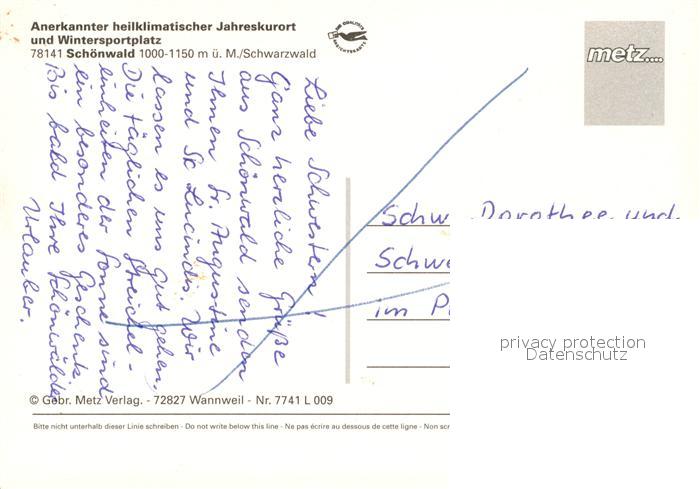 Anerkannter heilklimatischer Jahreskurort
und Wintersportplatz
78141 Schönwald 1000-1150 m ü. M./Schwarzwald
metz....
Liebe Schwestern!
Ganz herzliche Grüße
aus Schönwald senden
Ihnen Sr. Augustine
und Sr. Lucinda. Wir
lassen es uns gut gehen.
Die täglichen Streichel-
einheiten der Sonne sind
ein besonderes Geschenk
Bis bald Ihre Schönwälder
Urlauber.
Schw Dorothee und
Schwe
im P
privacy protection
Datenschutz
© Gebr. Metz Verlag. - 72827 Wannweil - Nr. 7741 L 009
Bitte nicht unterhalb dieser Linie schreiben - Do not write below this line - Ne pas écrire au dessous de cette ligne - Non scr